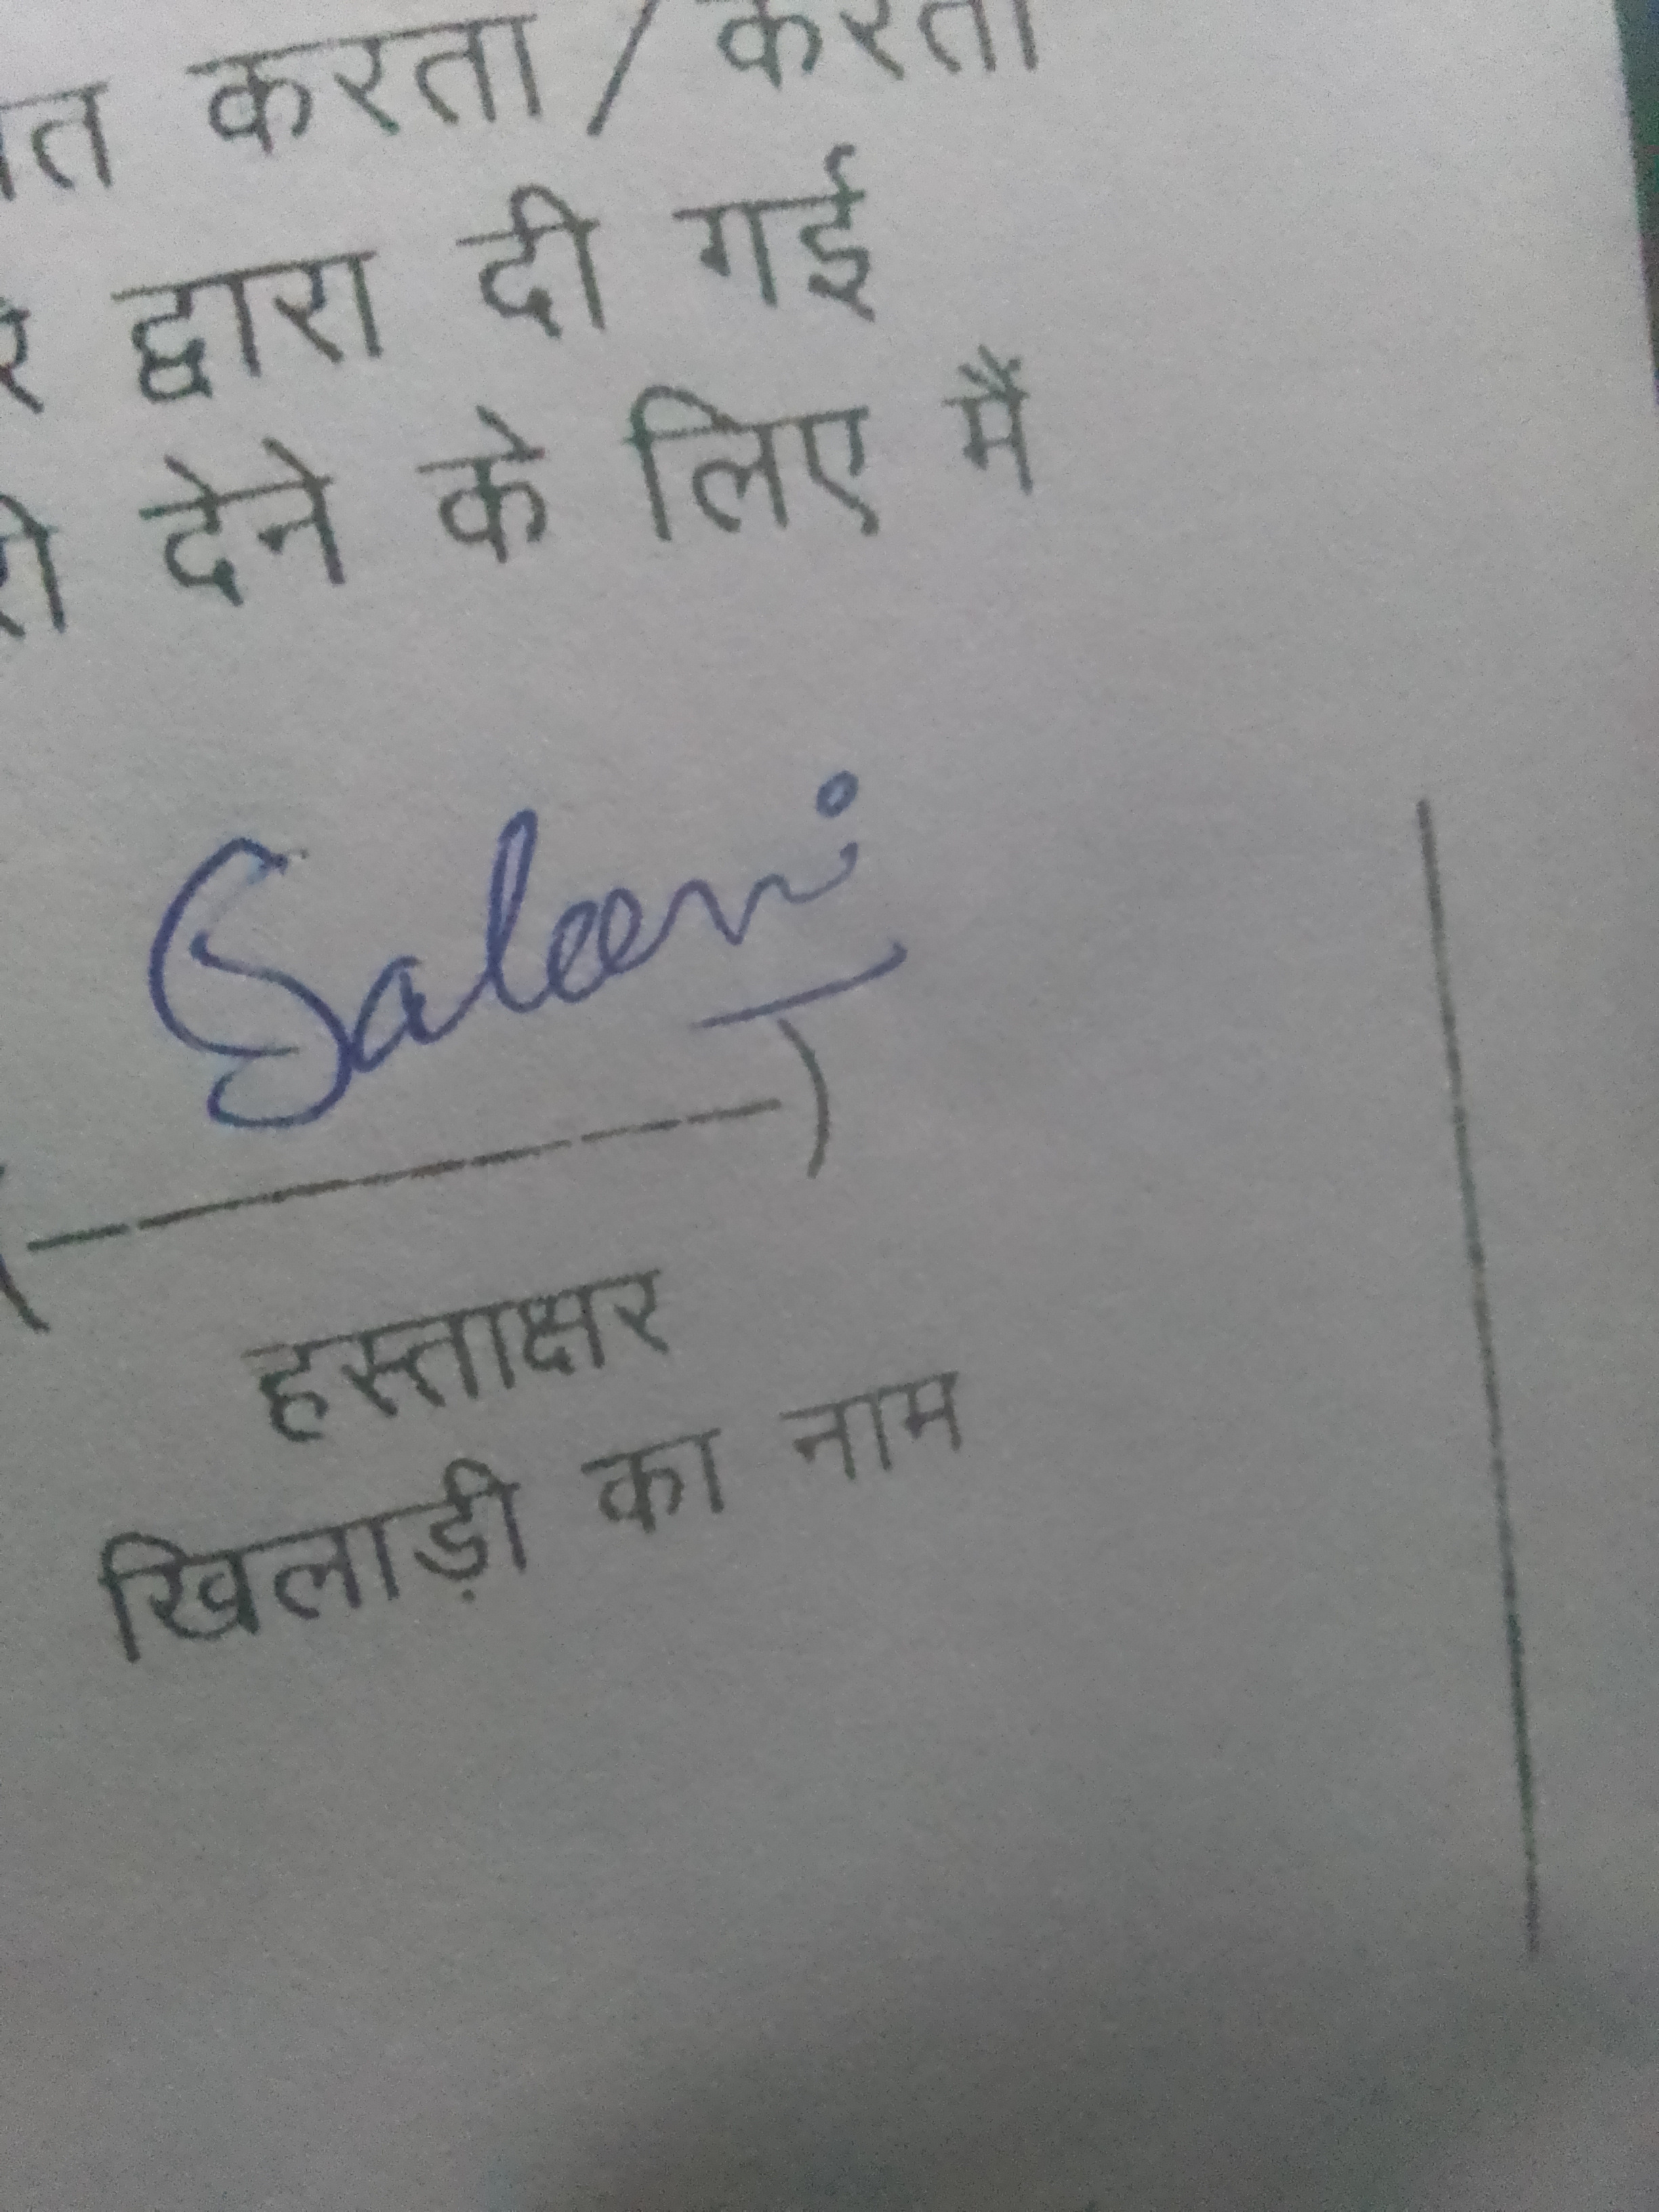 करता / करता
द्वारा दी गई
देने के लिए मैं
Saleem
(-----------)
हस्ताक्षर
खिलाड़ी का नाम